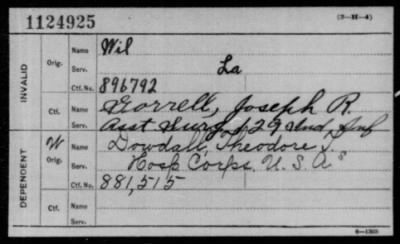 1124925 (3-H-4)
INVALID
Orig.
Name Wil
Serv. La
Ctf. No. 896792
Ctf.
Name Gorrell, Joseph R.
Serv. Asst Surg 129 Ind Inf
DEPENDENT
W
Orig.
Name Dowdall, Theodore
Serv. Hosp Corps, U.S.A.
Ctf. No. 881,515
Ctf.
Name
Serv.